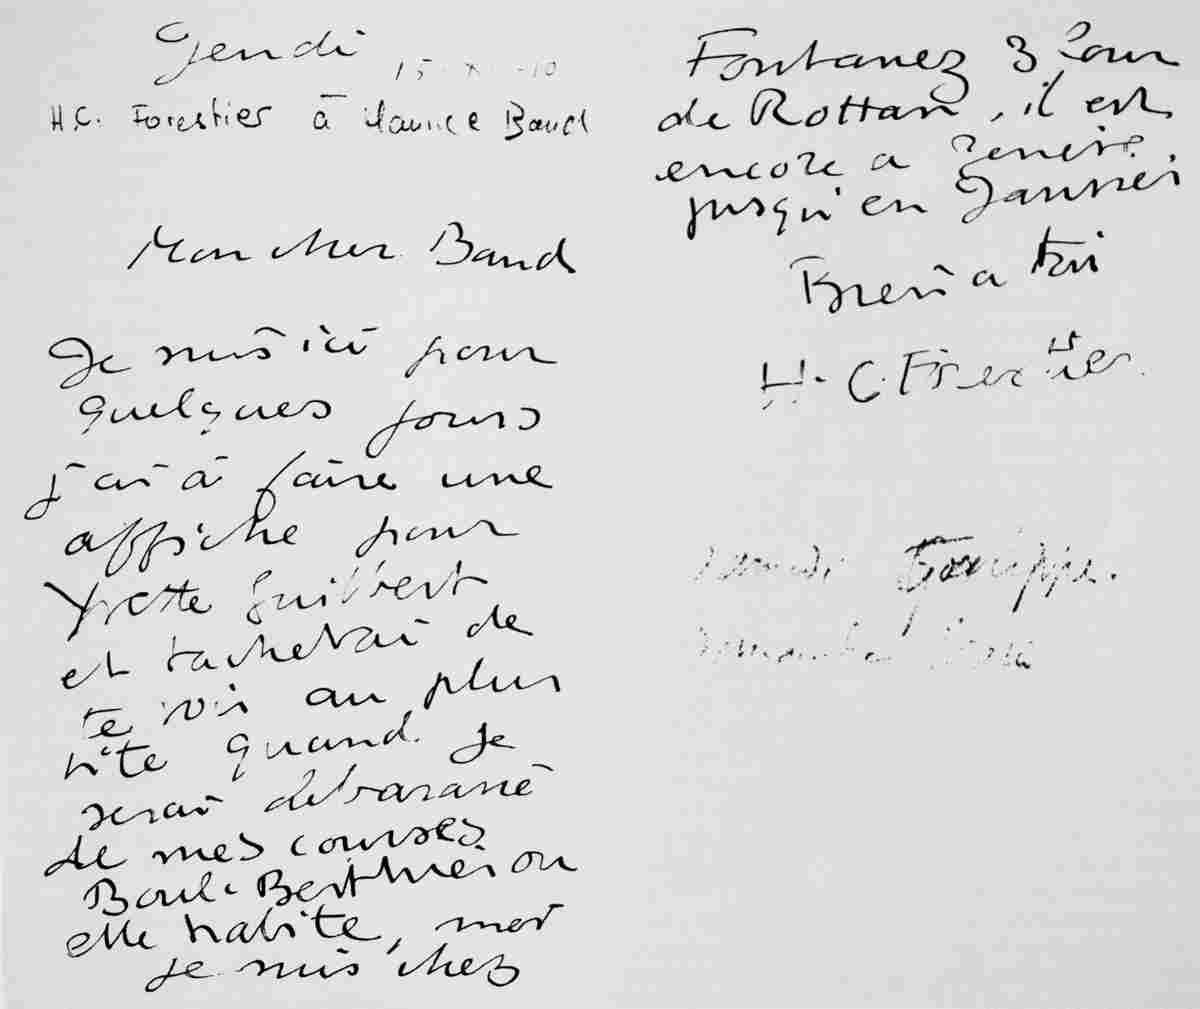 Jendi 15 - X - 10
H.C. Forestier à Maurice Baud
Mon cher Baud
Je suis ici pour
quelques jours
j'ai à faire une
affiche pour
Yvette Guilbert
et tacherai de
te voir au plus
vite quand je
serai débarassé
de mes courses
Boul. Berthier ou
elle habite, moi
je suis chez
Fontanez 3 Cour
de Rohan, il est
encore a Genève
jusqu'en Janvier
Bien a toi
H. C. Forestier
samedi